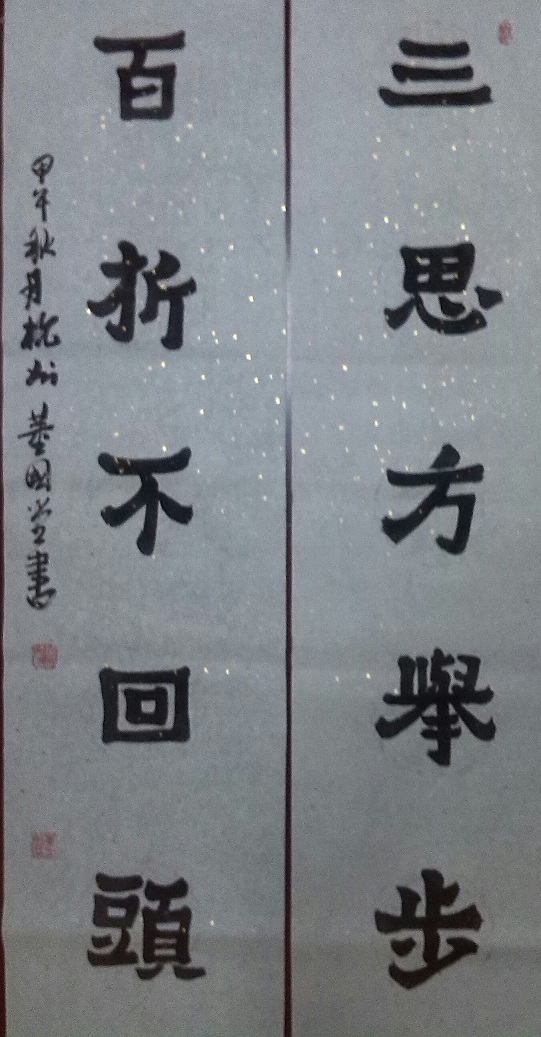 三思方舉步
百折不回頭
甲午秋月杭州董國堂書